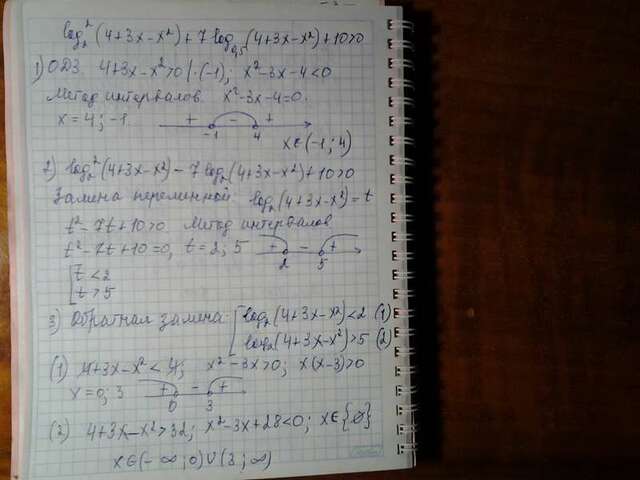 log₂²(4+3x-x²)+7log₀,₅(4+3x-x²)+10>0
1) ОДЗ. 4+3x-x²>0 |·(-1); x²-3x-4<0
Метод интервалов. x²-3x-4=0.
x=4; -1. + - +
-1 4 x∈(-1; 4)
2) log₂²(4+3x-x²)-7log₂(4+3x-x²)+10>0
Замена переменной: log₂(4+3x-x²)=t
t²-7t+10>0 Метод интервалов
t²-7t+10=0, t=2; 5 + - +
2 5
[t<2
t>5
3) Обратная замена: [log₂(4+3x-x²)<2 (1)
log₂(4+3x-x²)>5 (2)
(1) 4+3x-x²<4; x²-3x>0; x(x-3)>0
x=0; 3 + - +
0 3
(2) 4+3x-x²>32; x²-3x+28<0; x∈{∅}
x∈(-∞; 0)∪(3; ∞)